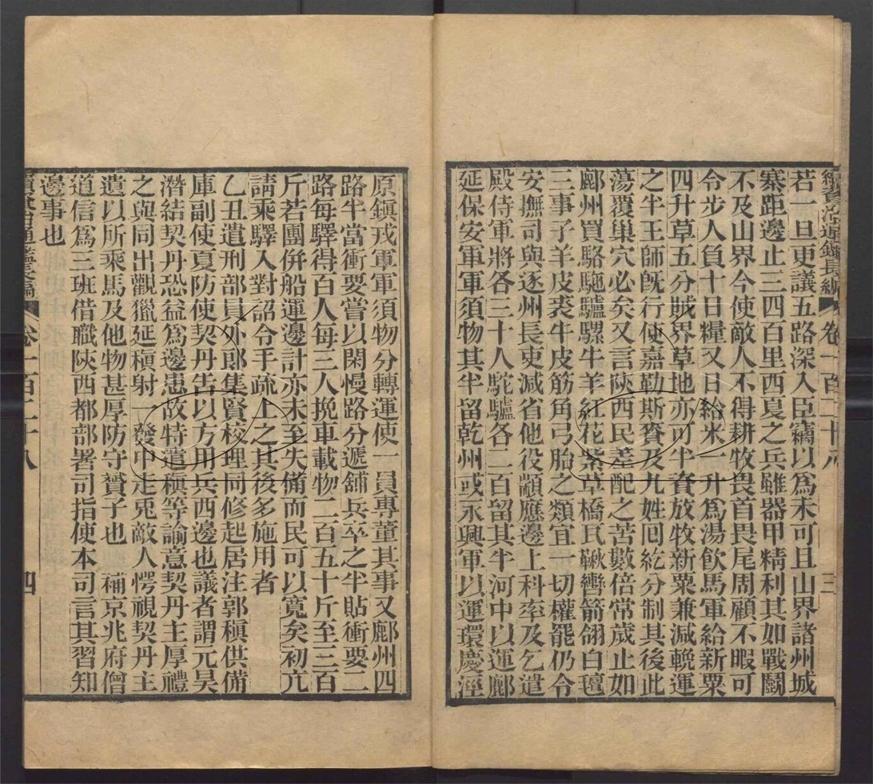 續資治通鑑長編 卷一百二十八 三
若一旦更議五路深入臣竊以為未可且山界諸州城
寨距邊止三四百里西夏之兵雖器甲精利其如戰鬭
不及山界今使敵人不得耕牧畏首畏尾周顧不暇可
令步人負十日糧又日給米一升爲湯飲馬軍給新粟
四升草五分賊界草地亦可半資放牧新粟兼減輓運
之半王師旣行使嘉勒斯賚及九姓回紇分制其後此
蕩覆巢穴必矣又言陝西民差配之苦數倍常歲止如
鄜州買駱駞驢騾牛羊紅花紫草橋瓦鞦轡箭翎白氊
三事子羊皮裘牛皮筋角弓胎之類宜一切權罷仍令
安撫司與逐州長吏減省他役顓應邊上科率及乞遣
殿侍軍將各三十人駝驢各二百留其半河中以運鄜
延保安軍軍須物其半留乾州或永興軍以運環慶涇
原鎮戎軍軍須物分轉運使一員專董其事又鄜州四
路半當衝要嘗以閑慢路分遞舖兵卒之半貼衝要二
路每驛得百人每三人挽車載物二百五十斤至三百
斤若團併般運邊計亦未至失備而民可以寬矣初亢
請乘驛入對詔令手疏上之其後多施用者
乙丑遣刑部員外郎集賢校理同修起居注郭稹供備
庫副使夏防使契丹告以方用兵西邊也議者謂元昊
潛結契丹恐益爲邊患故特遣稹等諭意契丹主厚禮
之與同出觀獵延稹射一發中走兎敵人愕視契丹主
遺以所乘馬及他物甚厚防守贇子也 補京兆府僧
道信爲三班借職陝西都部署司指使本司言其習知
邊事也
續資治通鑑長編 卷一百二十八 四